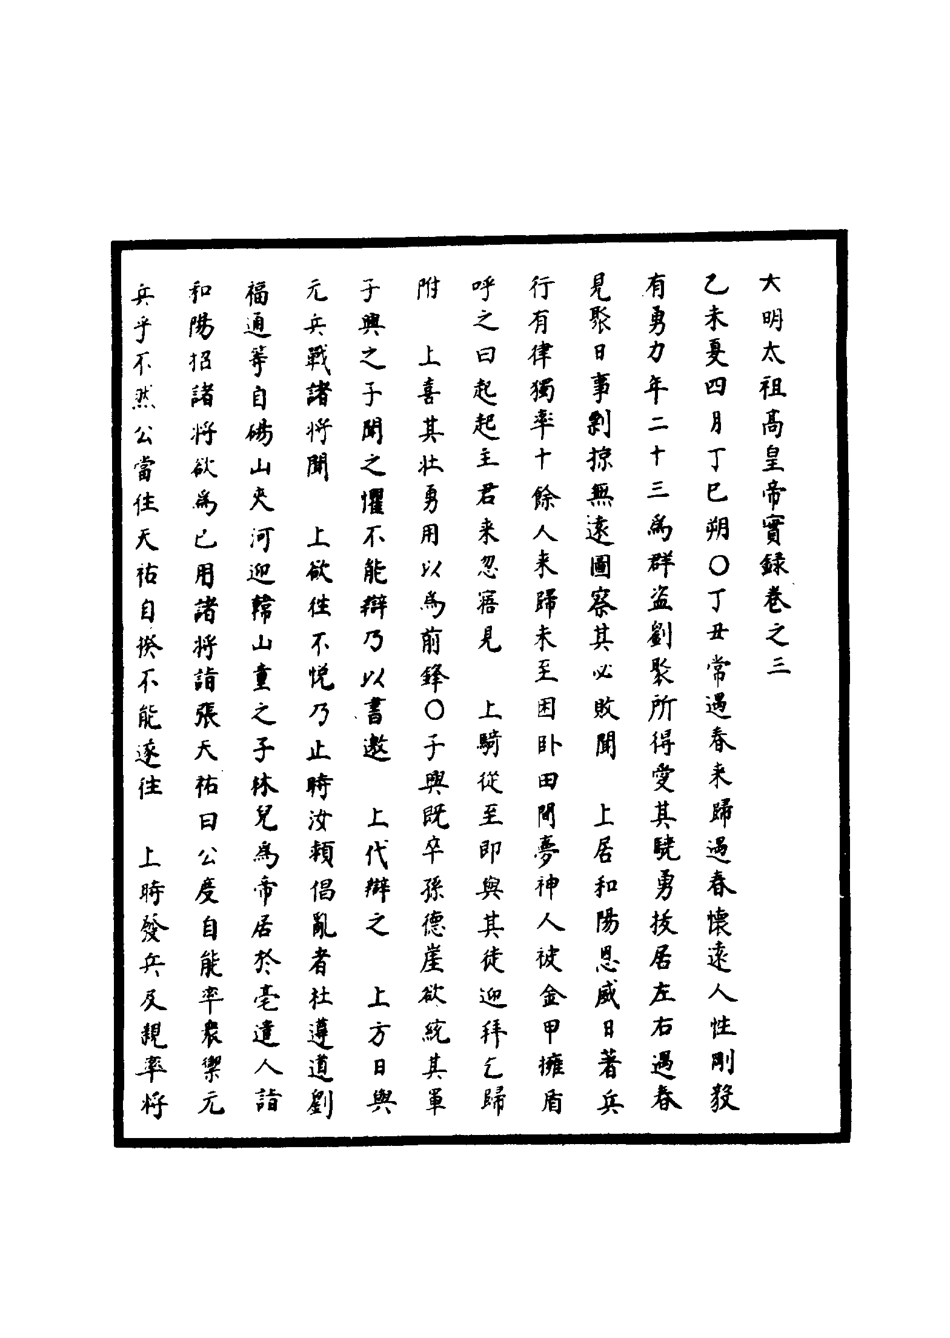 大明太祖高皇帝實錄卷之三
乙未夏四月丁巳朔○丁丑常遇春來歸遇春懷遠人性剛毅
有勇力年二十三為群盜劉聚所得愛其驍勇拔居左右遇春
見聚日事剽掠無遠圖察其必敗聞　上居和陽恩威日著兵
行有律獨率十餘人來歸未至困臥田間夢神人被金甲擁盾
呼之曰起起主君來忽寤見　上騎從至即與其徒迎拜乞歸
附　上喜其壯勇用以為前鋒○子興既卒孫德崖欲統其軍
子興之子聞之懼不能辯乃以書邀　上代辯之　上方日與
元兵戰諸將聞　上欲往不悅乃止時汝潁倡亂者杜遵道劉
福通等自碭山夾河迎韓山童之子林兒為帝居於亳遣人詣
和陽招諸將欲為己用諸將詣張天祐曰公度自能率衆禦元
兵乎不然公當往天祐自揆不能遂往　上時發兵及親率將